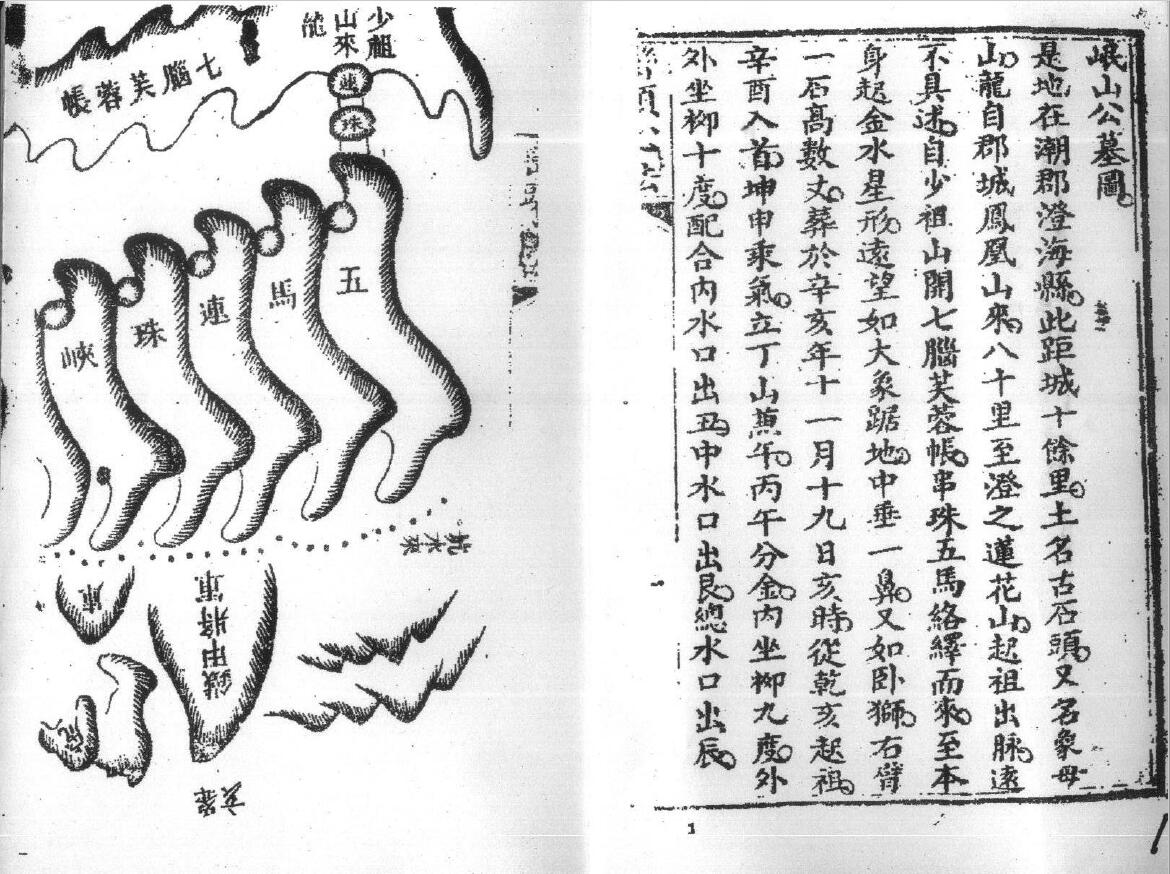 岷山公墓圖
是地在潮郡澄海縣此距城十餘里土名古石頭又名象母
山龍自郡城鳳凰山來八十里至澄之蓮花山起祖出脉遠
不具述自少祖山開七腦芙蓉帳串珠五馬絡繹而來至本
身起金水星形遠望如大象踞地中垂一鼻又如卧獅右臂
一石高數丈葬於辛亥年十一月十九日亥時從乾亥起祖
辛酉入首坤申乘氣立丁山蒹午丙午分金內坐柳九度外
外坐柳十度配合內水口出丑中水口出艮總水口出辰
1
少祖
山來
龍
七腦芙蓉帳
連
珠
五馬連珠峽
鐵甲將軍